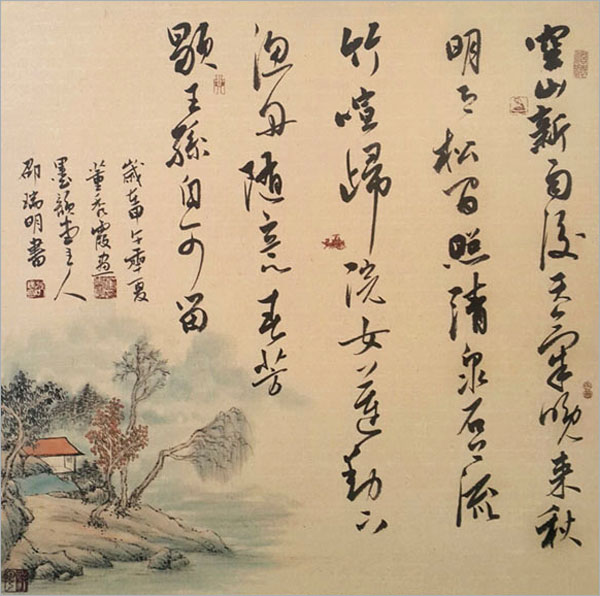 空山新雨後天氣晚来秋
明月松間照清泉石上流
竹喧歸浣女蓮動下
漁舟随意春芳
歇王孫自可留
歲在甲午季夏
董秀霞画
墨韻堂主人
邵瑞明書